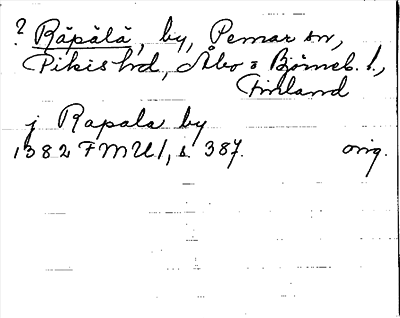 ? Räpälä, by, Pemar sn,
Pikis hd, Åbo o Björneb. l.,
Finland
j Rapala by
1382 FMU 1, s. 387. orig.